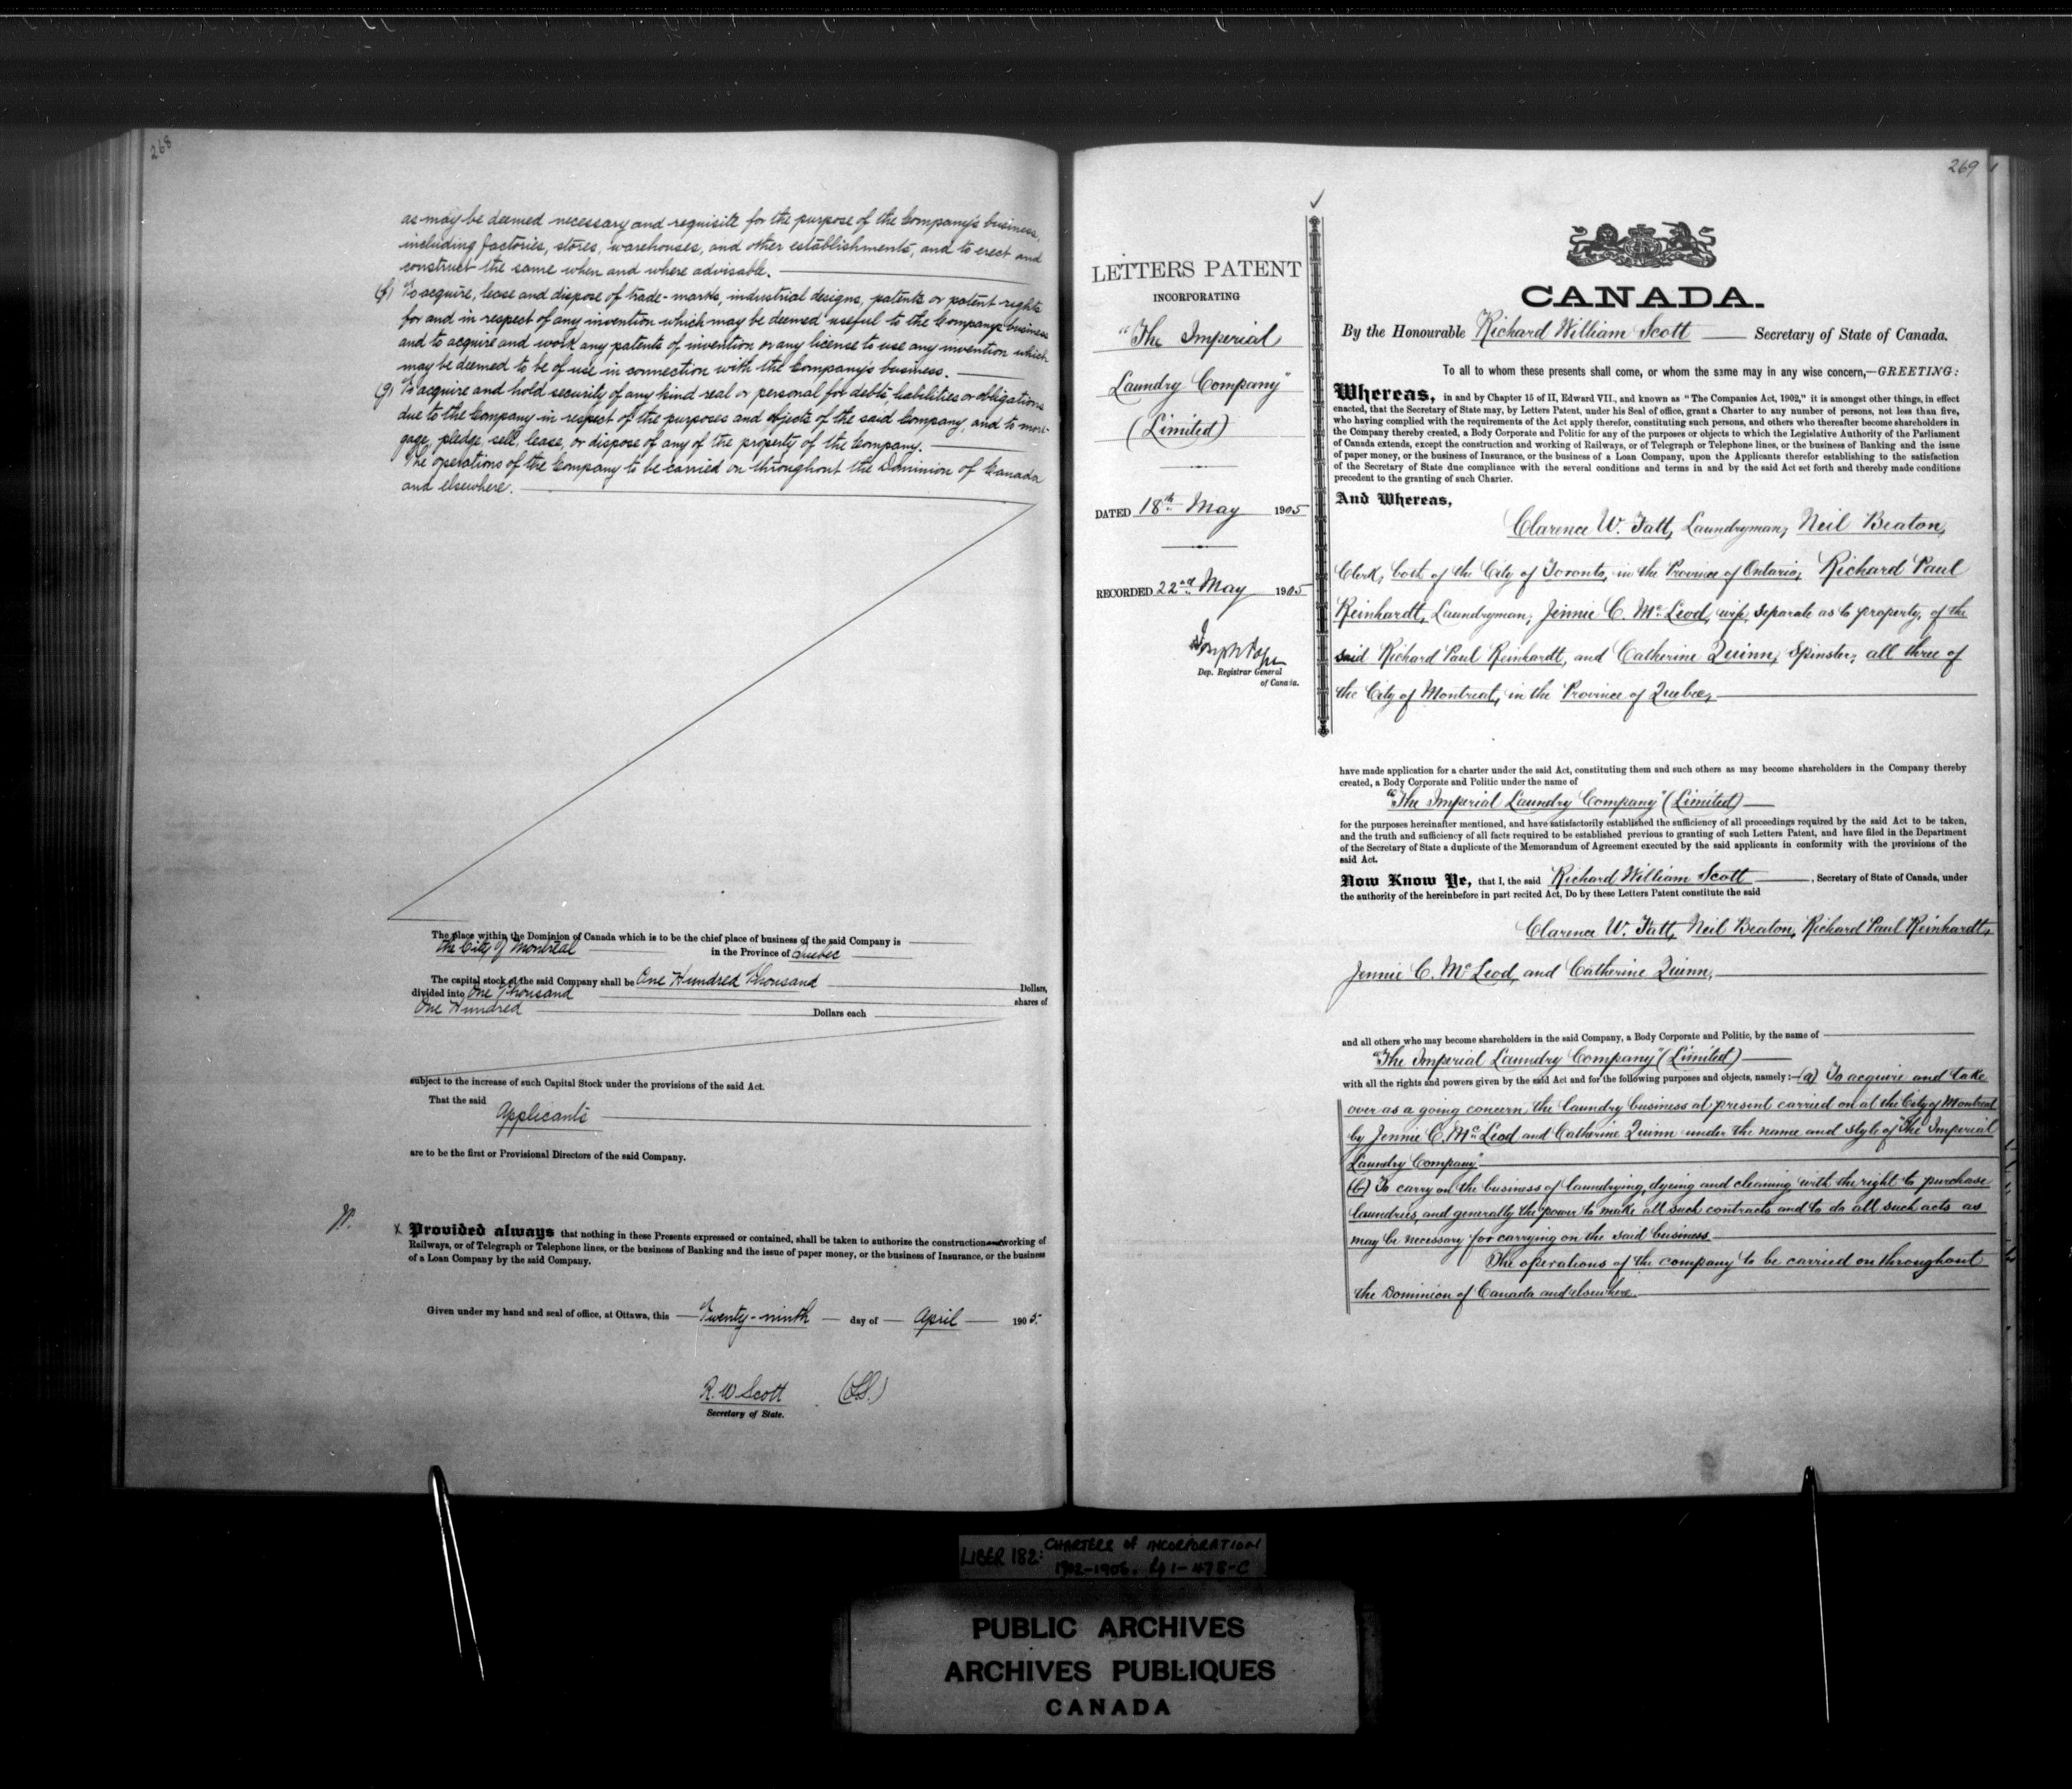 268
as may be deemed necessary and requisite for the purpose of the Company's business,
including factories, stores, warehouses, and other establishments, and to erect and
construct the same when and where advisable.
(f) To acquire, lease and dispose of trade-marks, industrial designs, patents or patent rights
for and in respect of any invention which may be deemed useful to the Company's business
and to acquire and work any patents of invention or any license to use any invention which
may be deemed to be of use in connection with the Company's business.
(g) To acquire and hold security of any kind real or personal for debts, liabilities or obligations
due to the Company in respect of the purposes and objects of the said Company, and to mort-
gage, pledge, sell, lease, or dispose of any of the property of the Company.
The operations of the Company to be carried on throughout the Dominion of Canada
and elsewhere.
The place within the Dominion of Canada which is to be the chief place of business of the said Company is
the City of Montreal in the Province of Quebec
The capital stock of the said Company shall be One Hundred Thousand Dollars,
divided into One Thousand shares of
One Hundred Dollars each
subject to the increase of such Capital Stock under the provisions of the said Act.
That the said
Applicants
are to be the first or Provisional Directors of the said Company.
x Provided always that nothing in these Presents expressed or contained, shall be taken to authorize the construction and working of
Railways, or of Telegraph or Telephone lines, or the business of Banking and the issue of paper money, or the business of Insurance, or the business
of a Loan Company by the said Company.
Given under my hand and seal of office, at Ottawa, this Twenty-ninth day of April 1905.
R. W Scott (LS.)
Secretary of State.
269
LETTERS PATENT
INCORPORATING
"The Imperial
Laundry Company"
(Limited)
DATED 18th May 1905
RECORDED 22nd May 1905
Joseph Pope
Dep. Registrar General
of Canada.
CANADA.
By the Honourable Richard William Scott Secretary of State of Canada.
To all to whom these presents shall come, or whom the same may in any wise concern,—GREETING:
Whereas, in and by Chapter 15 of II, Edward VII., and known as "The Companies Act, 1902," it is amongst other things, in effect
enacted, that the Secretary of State may, by Letters Patent, under his Seal of office, grant a Charter to any number of persons, not less than five,
who having complied with the requirements of the Act apply therefor, constituting such persons, and others who thereafter become shareholders in
the Company thereby created, a Body Corporate and Politic for any of the purposes or objects to which the Legislative Authority of the Parliament
of Canada extends, except the construction and working of Railways, or of Telegraph or Telephone lines, or the business of Banking and the issue
of paper money, or the business of Insurance, or the business of a Loan Company, upon the Applicants therefor establishing to the satisfaction
of the Secretary of State due compliance with the several conditions and terms in and by the said Act set forth and thereby made conditions
precedent to the granting of such Charter.
And Whereas,
Clarence W. Tatt, Laundryman, Neil Beaton,
Clerk, both of the City of Toronto, in the Province of Ontario, Richard Paul
Reinhardt, Laundryman, Jennie C. McLeod, wife, separate as to property, of the
said Richard Paul Reinhardt, and Catherine Quinn, Spinster, all three of
the City of Montreal, in the Province of Quebec,
have made application for a charter under the said Act, constituting them and such others as may become shareholders in the Company thereby
created, a Body Corporate and Politic under the name of
"The Imperial Laundry Company" (Limited)
for the purposes hereinafter mentioned, and have satisfactorily established the sufficiency of all proceedings required by the said Act to be taken,
and the truth and sufficiency of all facts required to be established previous to granting of such Letters Patent, and have filed in the Department
of the Secretary of State a duplicate of the Memorandum of Agreement executed by the said applicants in conformity with the provisions of the
said Act.
Now Know Ye, that I, the said Richard William Scott, Secretary of State of Canada, under
the authority of the hereinbefore in part recited Act, Do by these Letters Patent constitute the said
Clarence W. Tatt, Neil Beaton, Richard Paul Reinhardt,
Jennie C. McLeod, and Catherine Quinn,
and all others who may become shareholders in the said Company, a Body Corporate and Politic, by the name of
"The Imperial Laundry Company" (Limited)
with all the rights and powers given by the said Act and for the following purposes and objects, namely:—(a) To acquire and take
over as a going concern the laundry business at present carried on at the City of Montreal
by Jennie C. McLeod and Catherine Quinn under the name and style of "The Imperial
Laundry Company"
(b) To carry on the business of laundrying, dyeing and cleaning with the right to purchase
laundries, and generally the power to make all such contracts and to do all such acts as
may be necessary for carrying on the said business.
The operations of the company to be carried on throughout
the Dominion of Canada and elsewhere.
LIBER 182: CHARTERS of INCORPORATION
1902-1906.
PUBLIC ARCHIVES
ARCHIVES PUBLIQUES
CANADA